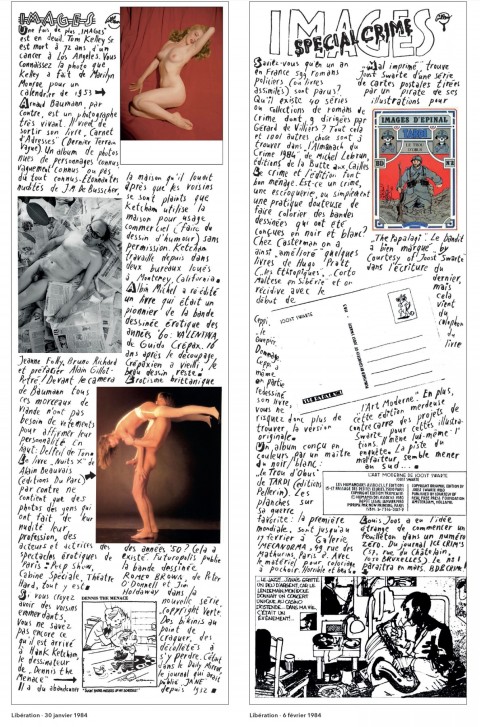 IMAGES
Une fois de plus "IMAGES"
est en deuil. Tom Kelley se
est mort à 72 ans d'un
cancer à Los Angeles. Vous
connaissez la photo que
Kelley a fait de Marilyn
Monroe pour un
calendrier de 1953
Arnaud Baumann, par
contre, est un photographe
très vivant. Il vient de
sortir son livre, Carnet
d'Adresses (Dernier Terrain
Vague) Un album de photos
nues de personnages connus
vaguement connus ou pas
du tout connus. Etonnantes
nudités de J.M De Busscher,
Jeanne Folly, Bruno Richard
et préfacier Alain Gillot-
Pétré! Devant le camera
de Baumann tous
ces morceaux de
viande n'ont pas
besoin de vêtements
pour affirmer leur
personalité en
haut: Delfeil de Ton
Le livre "Nuits X" de
Alain Beauvais
(éditions Du Parc)
par contre ne
contient que de
photos des gens qui
ont fait de leur
nudité leur
profession, des
acteurs et actrices des
spectacles érotiques de
Paris: Peep Show,
Cabine Spéciale, Théâtre
Hard, tout y est
Si vous croyez
avoir des voisins
emmerdants,
vous ne savez
pas encore ce
qu'il est arrivé
à Hank Ketcham,
le dessinateur
de "Dennis the
Menace"
Il a du abandonner
la maison qu'il louait
après que les voisins
se sont plaints que
Ketcham utilise la
maison pour usage
commercial (faire du
dessin d'humour) sans
permission. Ketcham
travaille depuis dans
deux bureaux loués
à Monterey, California.
Albin Michel a réédité
un livre qui était un
pionnier de la bande
dessinée érotique des
années '60: VALENTINA,
de Guido Crépax. 16
ans après le découpage,
Crépaxien a vieilli, le
beau dessin reste.
Erotisme brittanique
des années 50? Cela a
existé. Futuropolis publie
la bande dessinée
ROMEO BROWN, de Peter
O'Donnell et Jim
Holdaway dans la
nouvelle série
Copyright Verte.
Des bikinis au
point de
craquer, des
décolletés à
s'y perdre. C'était
dans le Daily Mirror,
le journal qui avait
publié JANE
depuis 1932
DENNIS THE MENACE
Libération - 30 janvier 1984
IMAGES
SPECIAL CRIME
Saviez-vous qu'en un an
en France 599 romans
policiers (ou livres
assimilés) sont parus?
Qu'il existe 40 séries
ou collections de romans de
crime dont 9 dirigées par
Gérard de Villiers? Tout cela
et 1001 autres choses sont à
trouver dans "l'Almanach du
Crime 1984" de Michel Lebrun,
éditions de la Butte aux Cailles
Le crime et l'édition font
bon ménage. Est-ce un crime,
une escroquerie, ou simplement
une pratique douteuse de
faire colorier des bandes
dessinées qui ont été
conçues en noir et blanc?
Chez Casterman on a
ainsi "amélioré" quelques
livres de Hugo Pratt
("les Ethiopiques", "Corto
Maltese en Sibérie") et on
récidive avec le
début de
Ceppi,
le
Guêpier.
Dommage,
Ceppi a
même
en partie
redessiné
son livre,
vous ne
risquez donc plus de
trouver la version
originale.
Un album conçu en
couleurs par un maître
du noir/blanc:
"le Trou d'Obus"
de TARDI (éditions
Pellerin). Les
planches sur
sa guerre
favorite: la première
mondiale, sont jusqu'au
17 février à Galerie
MECANORMA, 49 rue des
Mathurins, Paris 8e. Avec
le matériel pour colorier
"Mal imprimé", trouve
Joost Swarte d'une série
de cartes postales tirées
par un pirate de ses
illustrations pour
IMAGES D'EPINAL
TARDI
LE TROU D'OBUS
"The Papalagi". Le bandit
a bien marqué "by
Courtesy of Joost Swarte"
dans l'écriture du
dernier,
mais
cela
vient
du
colophon
du
livre
JOOST SWARTE
THE PAPALAGI
"l'Art Moderne". En plus,
cette édition merdeuse
contrecarre des projets de
Swarte pour cette illustra-
tions "il même lui-même: l'
enquête. La piste du
malfaiteur semble mener
au sud...
L'ART MODERNE DE JOOST SWARTE
Bonis, Joos, a eu l'idée
étrange de commencer un
feuilleton dans un numéro
zéro. Du journal ICE CRIM'S
(57, rue du Châtelain,
1050 BRUXELLES), le no 1
paraîtra en mars. BDECRIME!
Libération - 6 février 1984